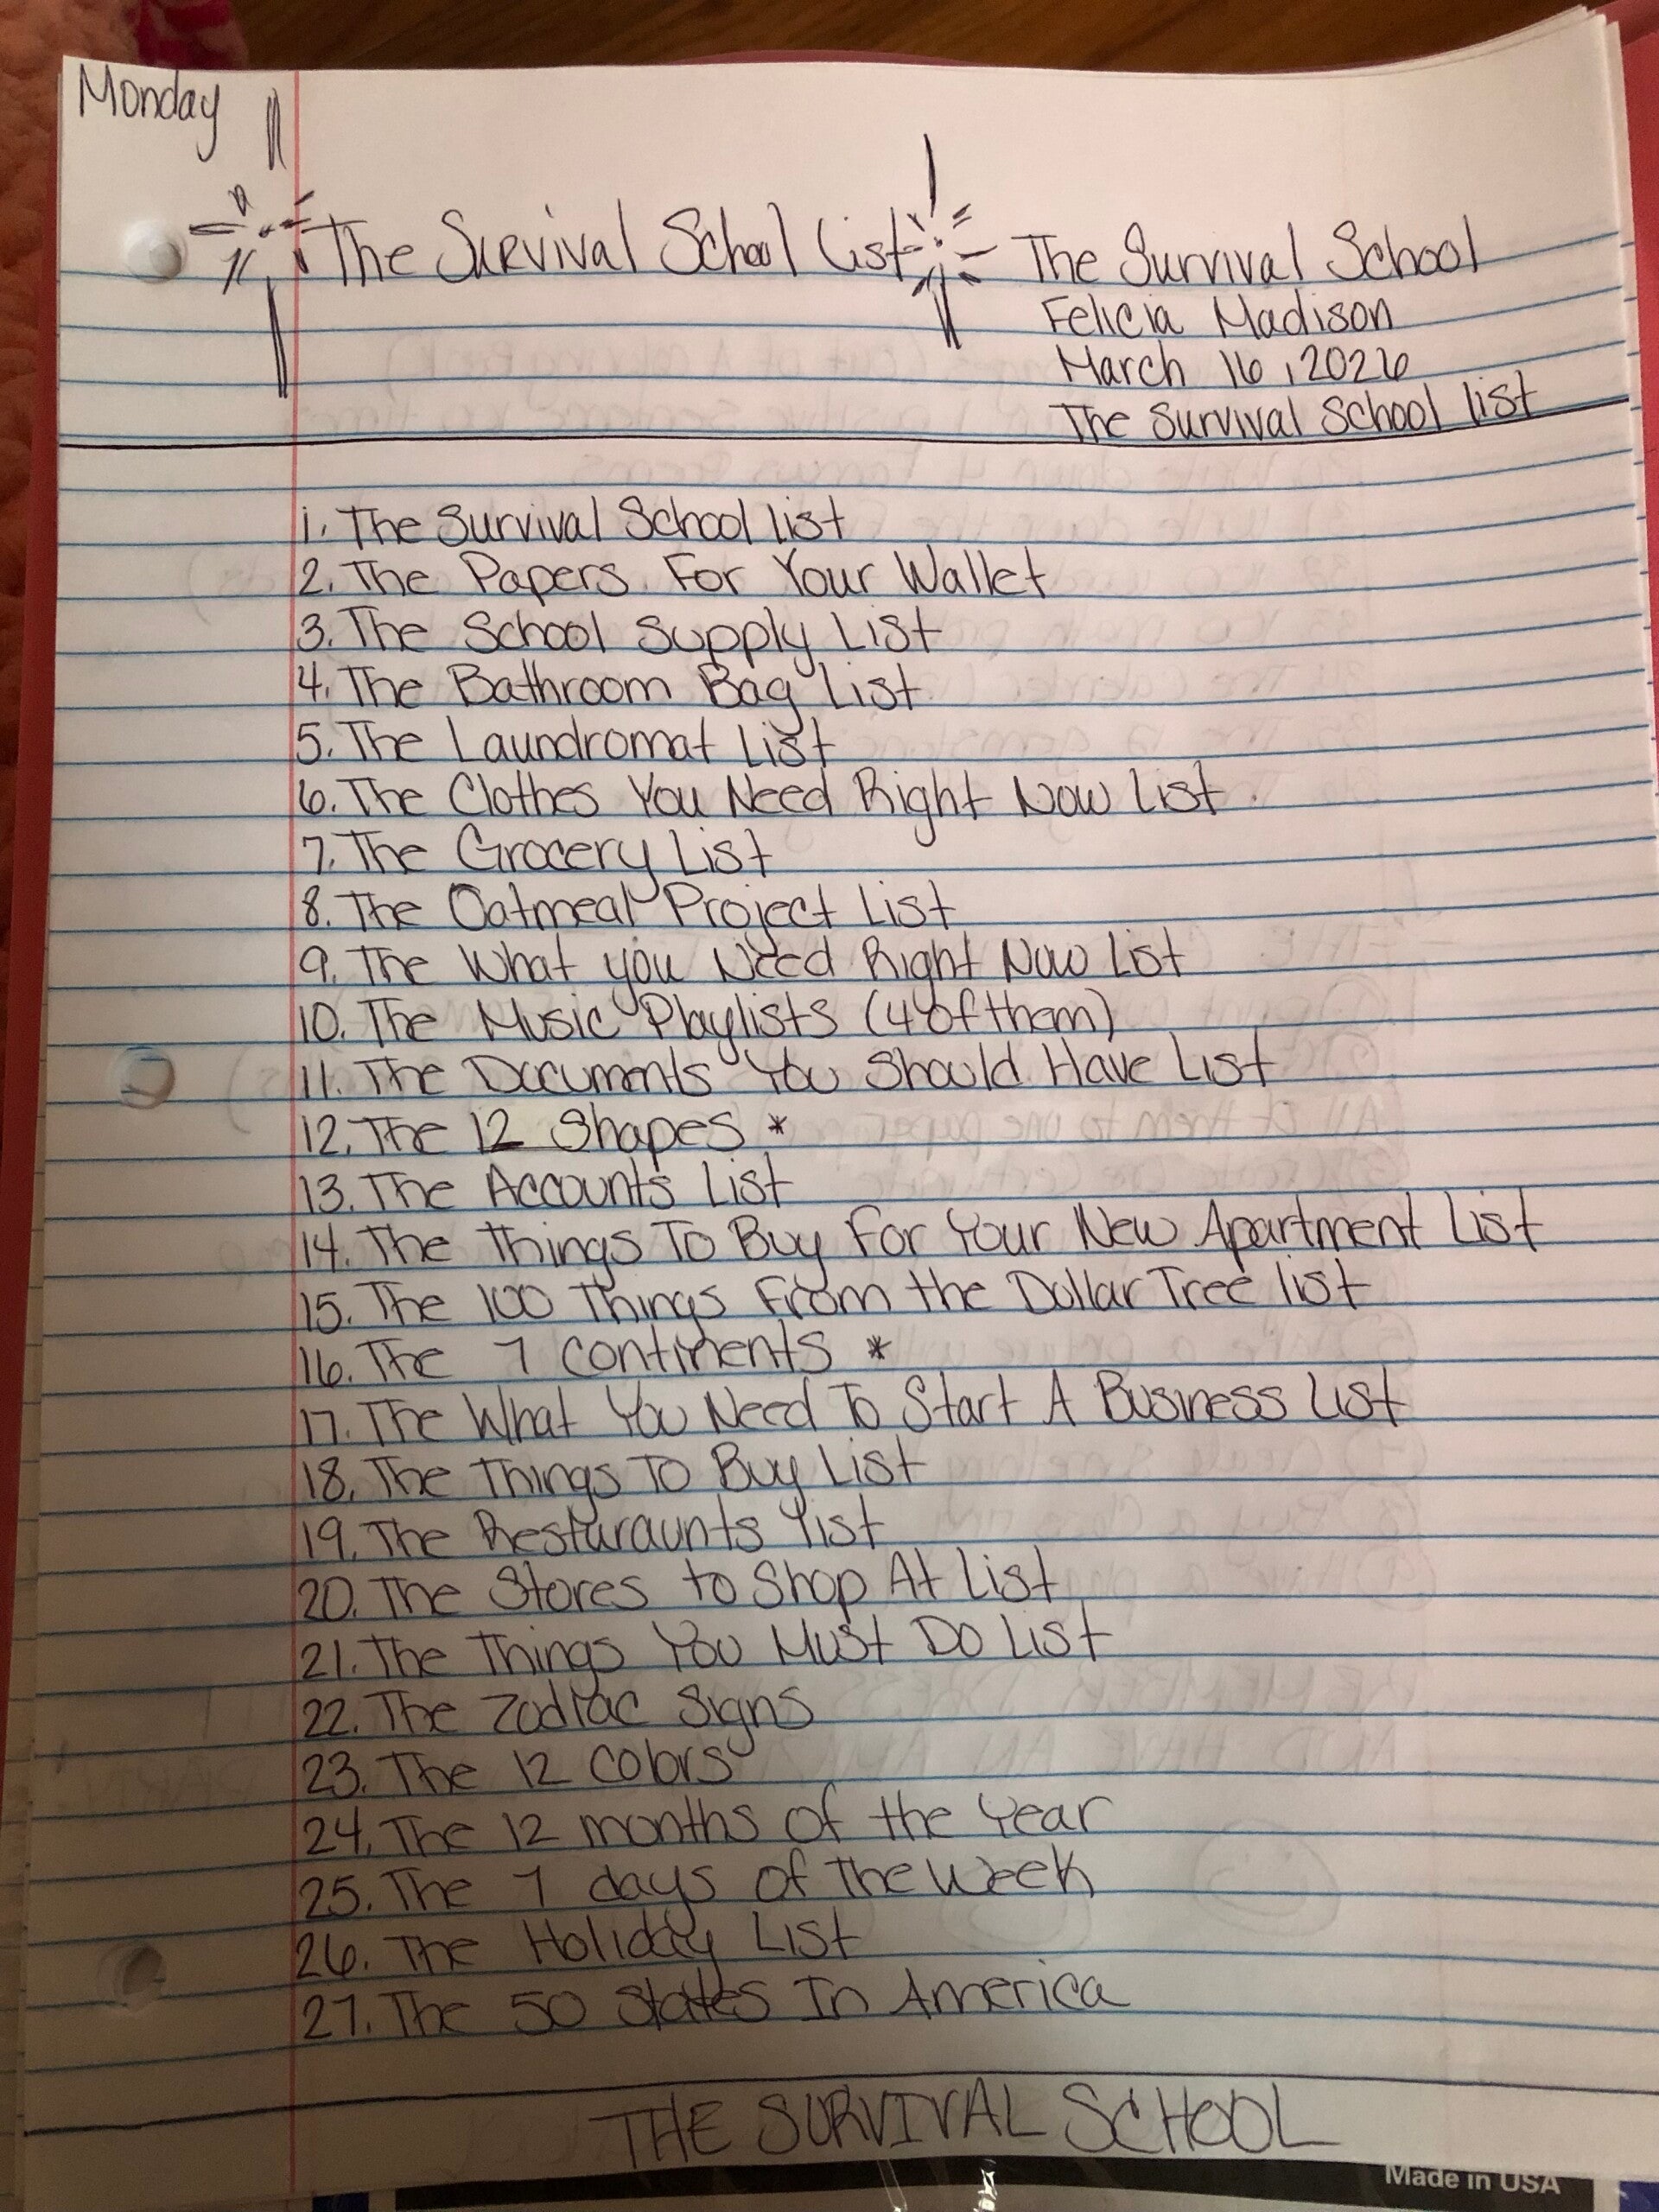 Monday
The Survival School List
The Survival School
Felicia Madison
March 16, 2026
The Survival School list
1. The Survival School list
2. The Papers For Your Wallet
3. The School Supply List
4. The Bathroom Bag List
5. The Laundromat List
6. The Clothes You Need Right Now List
7. The Grocery List
8. The Oatmeal Project List
9. The What you Need Right Now List
10. The Music Playlists (4 of them)
11. The Documents You Should Have List
12. The 12 Shapes *
13. The Accounts List
14. The Things To Buy For Your New Apartment List
15. The 100 Things From the Dollar Tree list
16. The 7 Continents *
17. The What You Need To Start A Business List
18. The Things To Buy List
19. The Resturaunts List
20. The Stores to Shop At List
21. The Things You Must Do List
22. The Zodiac Signs
23. The 12 Colors
24. The 12 months of the Year
25. The 7 days of The Week
26. The Holiday List
27. The 50 States In America
THE SURVIVAL SCHOOL
Made in USA